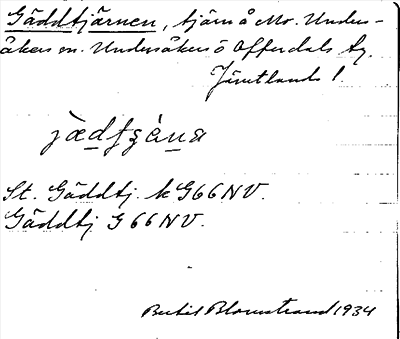 Gäddtjärnen, tjärn å Mo. Unders-
åkers sn. Undersåkers o Offerdals tg.
Jämtlands l.
jædfʒæna
St. Gäddtj. k G66NV.
Gäddtj G66NV.
Bertil Blomstrand 1934